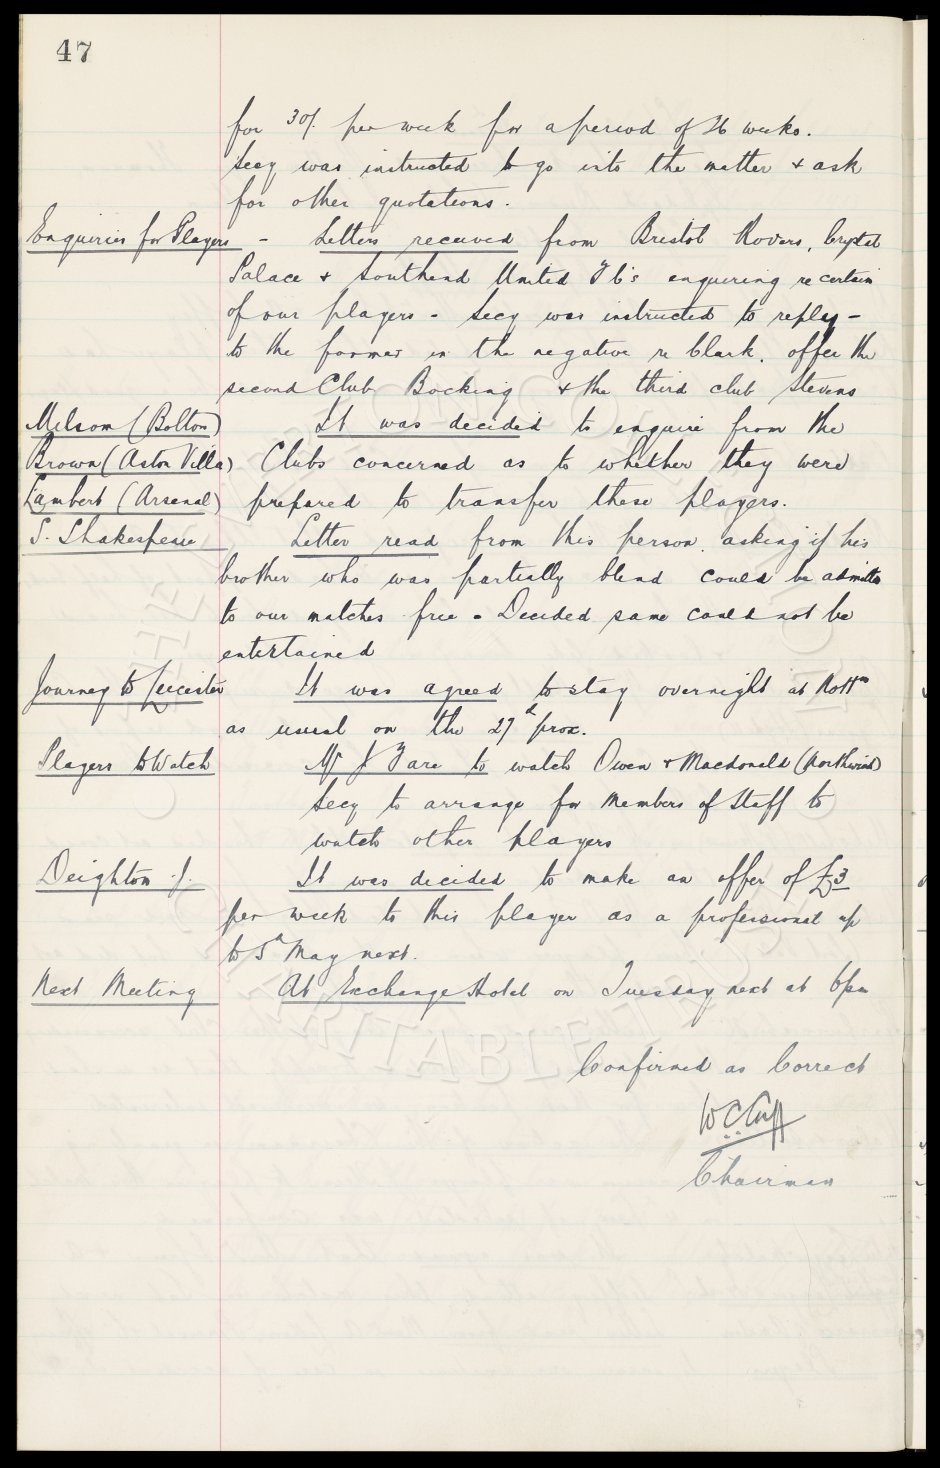 47
for 30/. per week for a period of 26 weeks.
Secy was instructed to go into the matter + ask
for other quotations.
Enquiries for Players - Letters received from Bristol Rovers, Crystal
Palace + Southend United F C's enquiring re certain
of our players - Secy was instructed to reply -
to the former in the negative re Clark, offer the
second Club Bocking + the third club Stevens
Milsom (Bolton) It was decided to enquire from the
Brown (Aston Villa) Clubs concerned as to whether they were
Lambert (Arsenal) prepared to transfer these players.
S. Shakespeare Letter read from this person asking if his
brother who was partially blind could be admitted
to our matches free - Decided same could not be
entertained
Journey to Leicester It was agreed to stay overnight at Nottm
as usual on the 27th prox.
Players to Watch Mr J Fare to watch Owen + Macdonald (Northwich)
Secy to arrange for Members of Staff to
watch other players
Deighton J. It was decided to make an offer of £3
per week to this player as a professional up
to 5th May next.
Next Meeting At Exchange Hotel on Tuesday next at 6pm
Confirmed as Correct
W C Cuff
Chairman
CHARITABLE TRUST